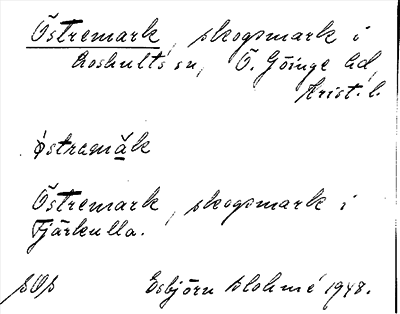 Östremark, skogsmark i
Loshults sn, Ö. Göinge hd,
Krist. l.
östramak
Östremark, skogsmark i
Fjärkulla.
SOS Esbjörn Blohmé 1948.